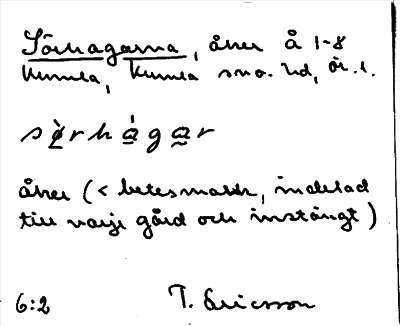 Sörhagarna, åker å 1-8
Kumla, Kumla sn o. hd, Ör. l.
sø̀rhágar
åker (< betesmark, indelad
till varje gård och instängt)
6:2 T. Ericsson